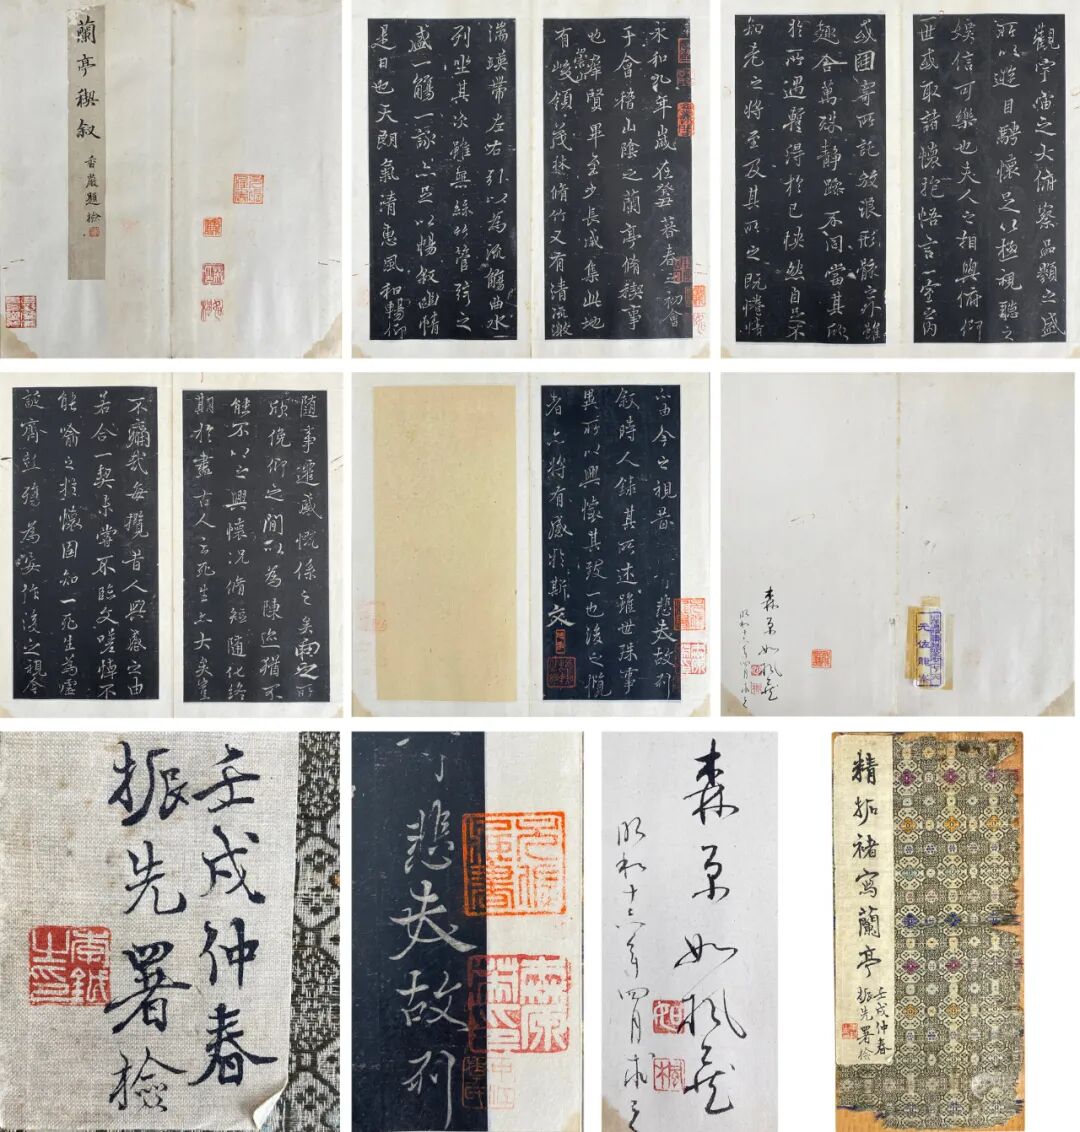 蘭亭稧叙
香嚴題檢
永和九年歲在癸暮春之初會
于會稽山陰之蘭亭脩稧事
也羣賢畢至少長咸集此地
崇山
有峻領茂林脩竹又有清流激
湍暎帶左右引以為流觴曲水
列坐其次雖無絲竹管弦之
盛一觴一詠亦足以暢叙幽情
是日也天朗氣清惠風和暢仰
觀宇宙之大俯察品類之盛
所以遊目騁懷足以極視聽之
娛信可樂也夫人之相與俯仰
一世或取諸懷抱悟言一室之內
或因寄所託放浪形骸之外雖
趣舍萬殊靜躁不同當其欣
於所遇蹔得於己怏然自足不
知老之將至及其所之既惓情
隨事遷感慨係之矣向之所
欣俛仰之間以為陳迹猶不
能不以之興懷況脩短隨化終
期於盡古人云死生亦大矣豈
不痛哉每攬昔人興感之由
若合一契未嘗不臨文嗟悼不
能喻之於懷固知一死生為虛
誕齊彭殤為妄作後之視今
亦由今之視昔悲夫故列
叙時人錄其所述雖世殊事
異所以興懷其致一也後之攬
者亦將有感於斯文
森原如楓藏
昭和十六年四月求之
壬戌仲春
振先署檢
李鉞之印
悲夫故列
森原如楓藏
昭和十六年四月求之
精拓褚寫蘭亭
壬戌仲春
振先署檢